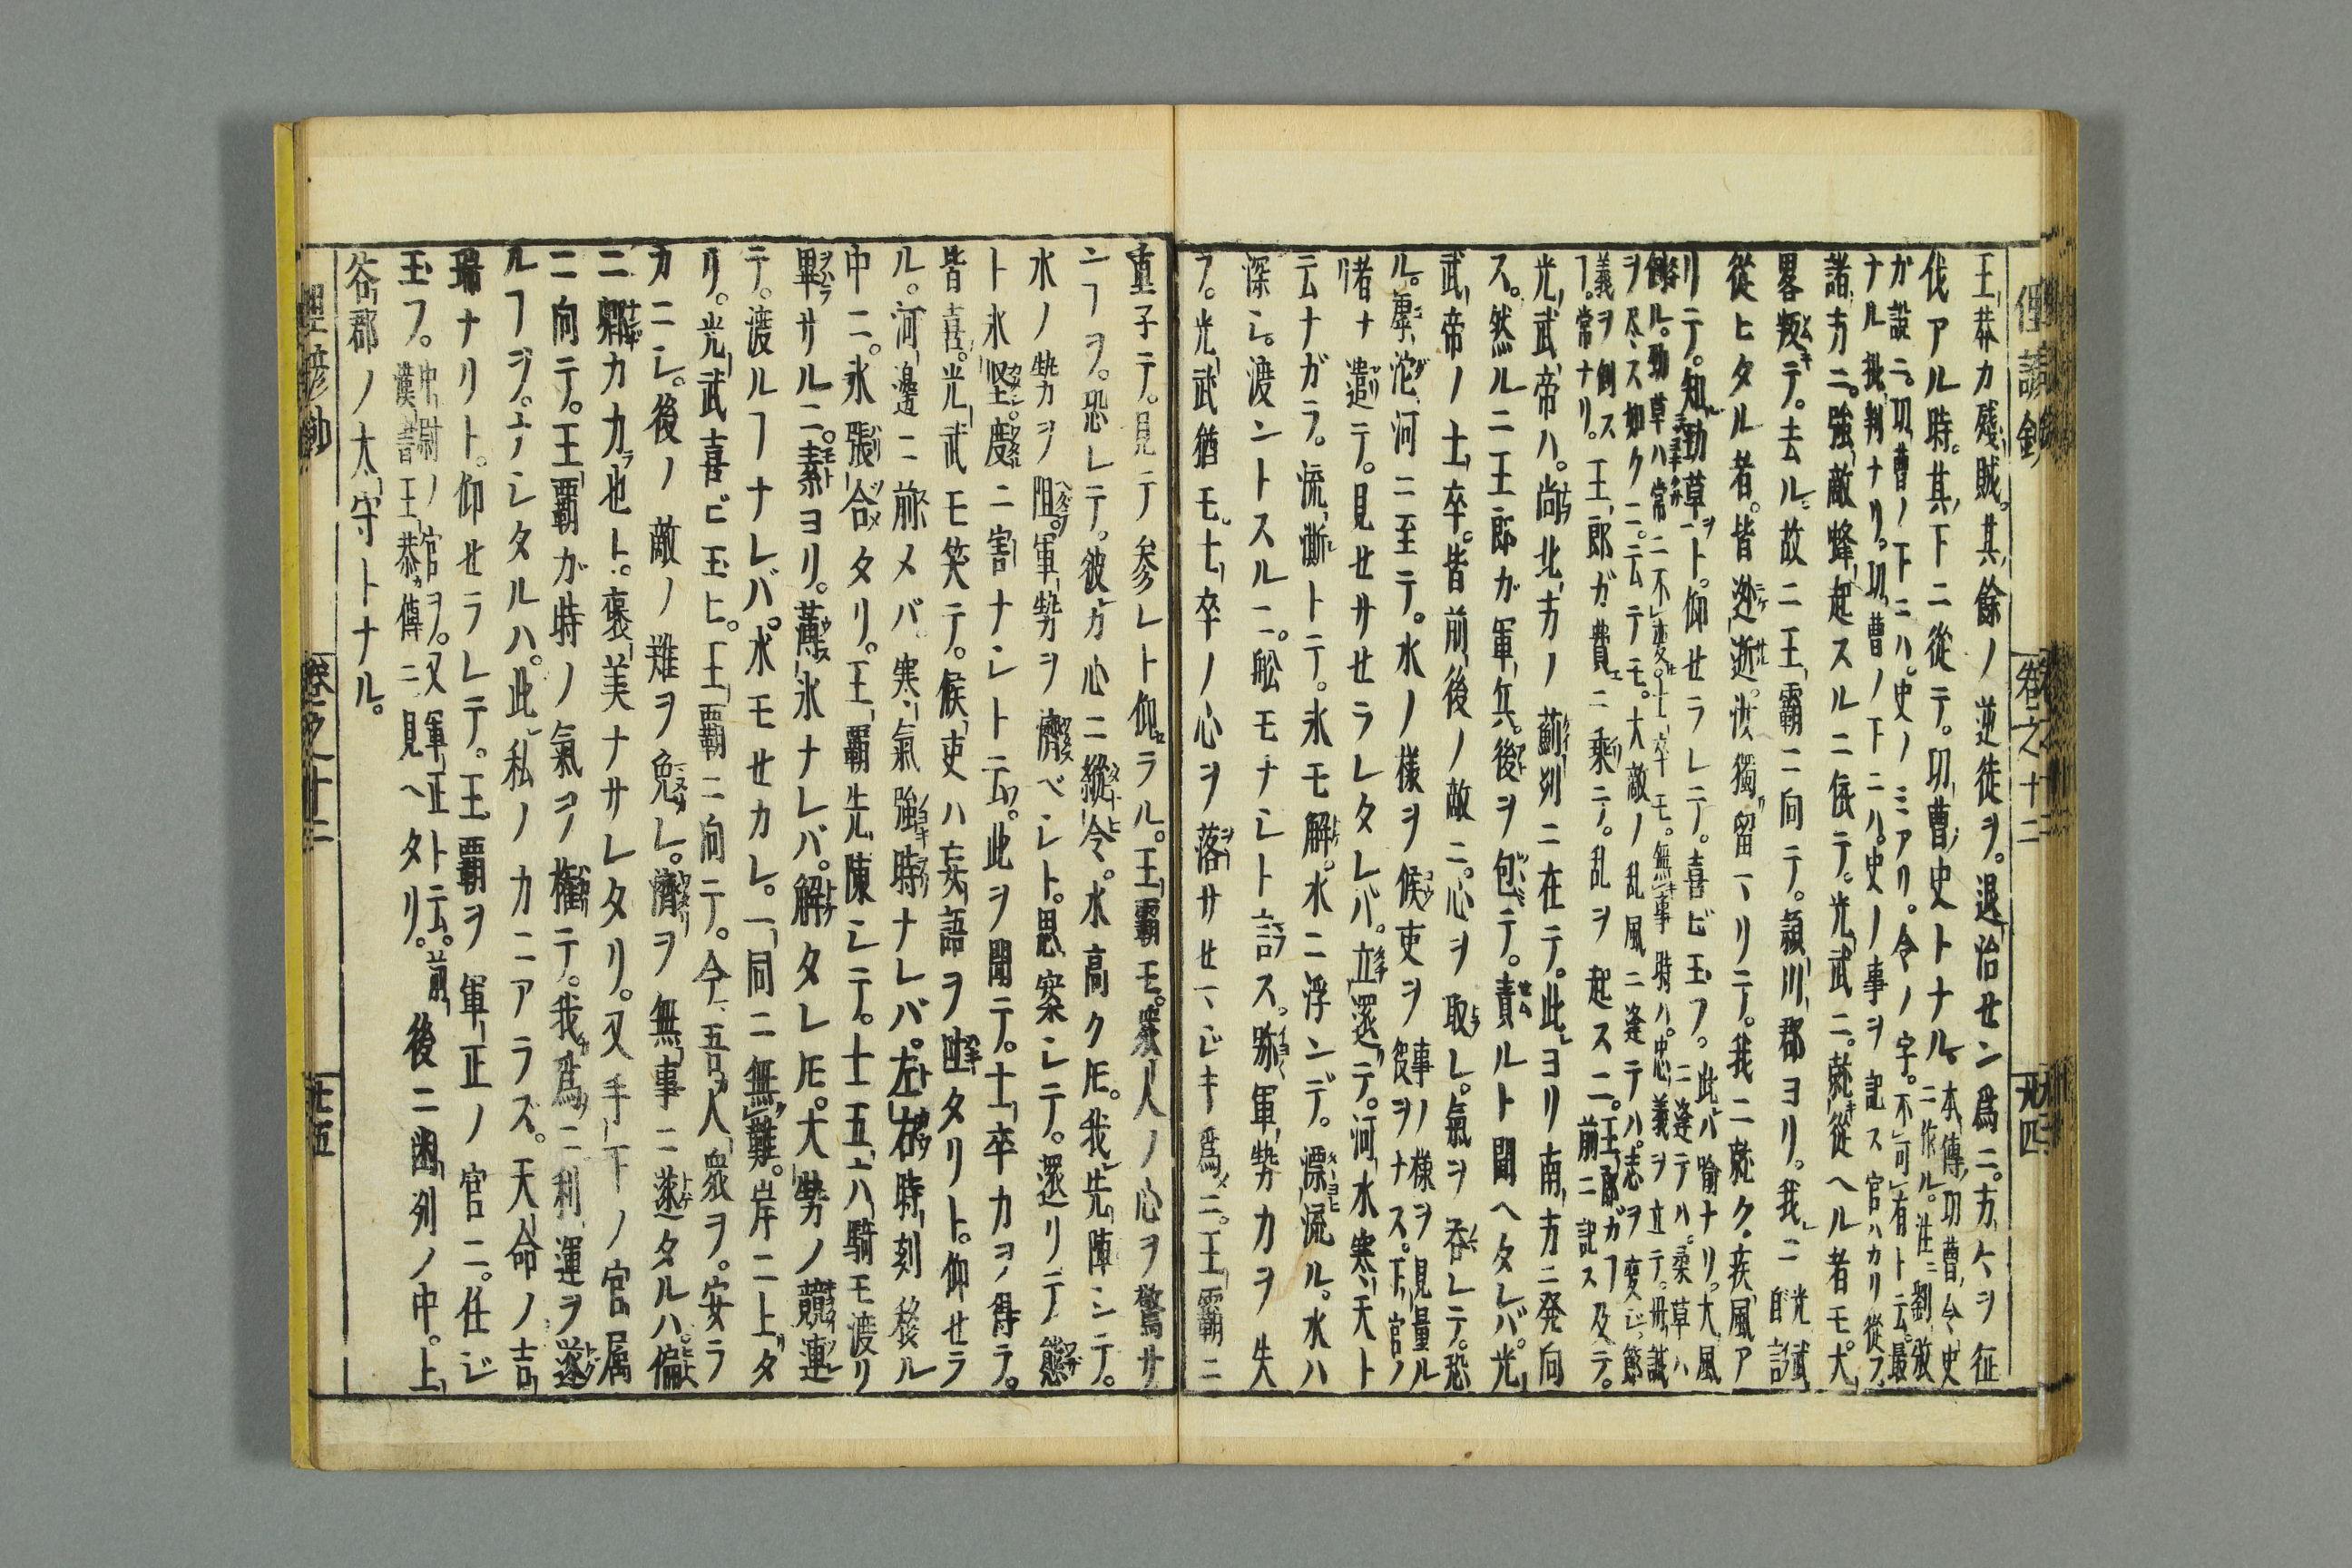 俚諺鈔 卷之十二 廿四
王莽カ殘賊。其餘ノ逆徒ヲ。退治セン爲ニ。方々ヲ征
伐アル時。其下ニ從テ。功曹史トナル。本傳功曹令史
ニ作ル。註ニ劉攽
ガ説ニ。功曹ノ下ニハ。史ノミアリ。令ノ字。不可有ト云。最
ナル批判ナリ。功曹ノ下ニハ。史ノ事ヲ記ス官ハカリ從フ。
諸方ニ。強敵蜂起スルニ依テ。光武ニ。就從ヘル者モ。大
畧叛テ。去ル故ニ王霸ニ向テ。頴川郡ヨリ。我ニ 光武
自訓
從ヒタル者。皆迯逝。汝獨留マリテ。我ニ就ク。疾風ア
リテ。知勁草ト。仰セラレテ。喜ビ玉フ。此ハ喩ナリ。大風
ニ逢テハ。柔草ハ
倒ル。勁草ハ常ニ不変。士卒モ。無事時ハ。忠義ヲ立テ。毋誠
ヲ尽ス如クニ。云テモ。大敵ノ乱風ニ逢テハ。志ヲ変ジ。節
義ヲ倒ス
フ。常ナリ。王郎ガ費ニ乘テ。乱ヲ起スニ。王郎ガフ
前ニ記ス 及テ。
光武帝ハ。尚北方ノ薊列ニ在テ。此ヨリ南方ニ発向
ス。然ルニ王郎ガ軍兵。後ヲ包テ。責ルト聞ヘタレバ。光
武帝ノ士卒。皆前後ノ敵ニ。心ヲ取レ。氣ヲ呑レテ。恐
ル。滹沱河ニ至テ。水ノ様ヲ候吏ヲ 事ノ様ヲ見量ル
役ヲナス。下官ノ
者ナリ 遣テ。見セサセラレタレバ。立還テ。河水寒天ト
云ナガラ。流澌トテ。氷モ解。水ニ浮ンデ。漂流ル。水ハ
深シ。渡ントスルニ。舩モナシト訟ス。弥軍勢カヲ失
フ。光武猶モ。士卒ノ心ヲ落サセマジキ爲ニ。王霸ニ
重子テ。見テ参レト仰ラル。王霸モ。衆人ノ心ヲ驚サ
ンフヲ。恐レテ。彼カ心ニ縱令。水高クトモ。我先陣シテ。
水ノ勢ヲ阻。軍勢ヲ濟ベシト。思案シテ。還リテ態
ト氷堅。度ニ割ナシト云。此ヲ聞テ。士卒カヲ得ラ。
皆喜。光武モ笑テ。候吏ハ妄語ヲ吐タリト。仰セラ
ル。河邊ニ前メバ。寒氣強時ナレバ。左右時刻移ル
中ニ。氷張合タリ。王霸先陳シテ。士五六騎モ渡リ
畢サルニ。素ヨリ。薄氷ナレバ。解タレトモ。大勢ノ競連
テ。渡ルフナレバ。水モセカレ。一同ニ無難。岸ニ上タ
リ。光武喜ビ玉ヒ。王霸ニ向テ。今吾人衆ヲ。安ラ
カニシ。後ノ敵ノ難ヲ免レ。濟ヲ無事ニ遂タルハ。偏
ニ卿カカラ也ト。褒美ナサレタリ。又手下ノ官属
ニ向テ。王霸ガ時ノ氣ヲ權テ。我爲ニ利運ヲ遂
ルフヲ。エシタルハ。此私ノカニアラズ。天命ノ吉
瑞ナリト。仰セラレテ。王霸ヲ軍正ノ官ニ。任ジ
玉フ。中尉ノ官ヲ。又軍正ト云。前
漢書王莽傳ニ見ヘタリ。 後ニ幽列ノ中。上
谷郡ノ太守トナル。
俚諺鈔 卷之十二 廿五